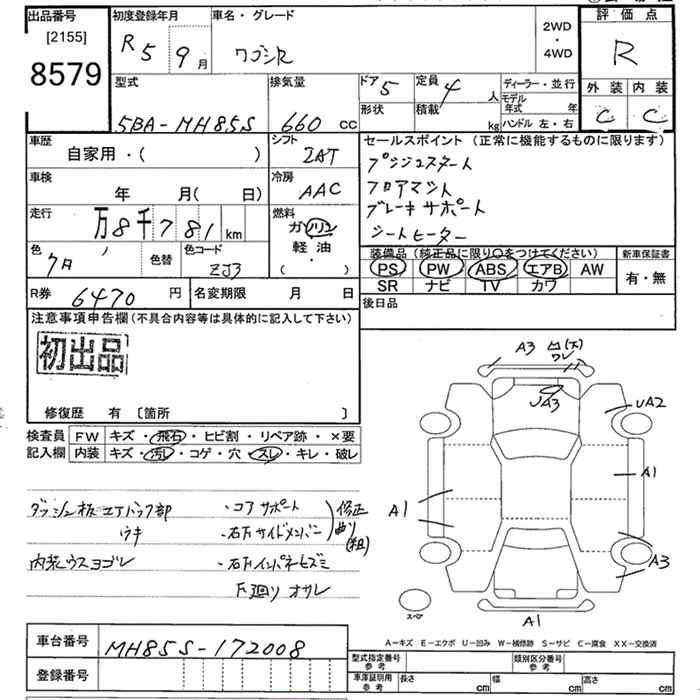 出品番号
[2155]
8579
初度登録年月
R5 9月
車名・グレード
ワゴンR
2WD
・
4WD
評価点
R
外装 内装
C C
型式
5BA-MH85S
排気量
660 cc
ドア 5
定員 4 人
形状
積載 kg
ディーラー・並行
モデル年式 年
ハンドル 左・右
車歴
自家用・( )
シフト
IAT
車検
年 月( 日)
冷房
AAC
走行
万8千781 km
燃料
ガソリン
軽油
・( )
色
クロ
色替
色コード
ZJ3
R券 6470 円
名変期限 月 日
セールスポイント (正常に機能するものに限ります)
プッシュスタート
フロアマット
ブレーキサポート
シートヒーター
装備品 (純正品に限り○をつけてください)
PS PW ABS エアB AW
SR ナビ TV カワ
新車保証書
有・無
後日品
注意事項申告欄(不具合内容等は具体的に記入して下さい)
初出品
修復歴 有 〔箇所 〕
検査員記入欄
FW キズ・飛石・ヒビ割・リペア跡・×要
内装 キズ・汚レ・コゲ・穴・スレ・キレ・破レ
ダッシュ板エアバック部
ウキ
内装ウスヨゴレ
・コアサポート
・右Fサイドメンバー
修正
・右Fインパネヒズミ
下廻りオサレ
A3 凹(大)
ワレ
UA3
UA2
A1
A1
A3
A1
スペア
A-キズ E-エクボ U-凹み W-補修跡 S-サビ C-腐食 XX-交換済
車台番号 MH85S-172008
登録番号
型式指定番号
参考
類別区分番号
参考
車庫証明用
参考
長さ cm 幅 cm 高さ cm